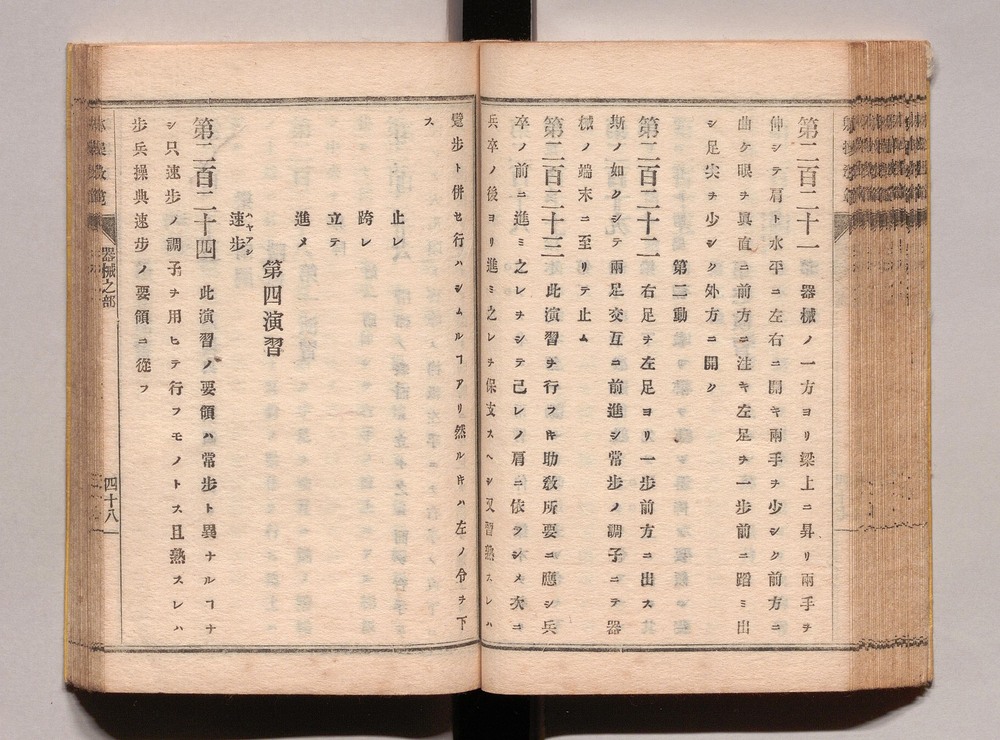 第二百二十一 器械ノ一方ヨリ梁上ニ昇リ兩手ヲ
伸シテ肩ト水平ニ左右ニ開キ兩手ヲ少シク前方ニ
曲ケ眼ヲ真直ニ前方ニ注キ左足ヲ一歩前ニ踏ミ出
シ足尖ヲ少シク外方ニ開ク
第二動
第二百二十二 右足ヲ左足ヨリ一歩前方ニ出ス
斯ノ如クシテ兩足交互ニ前進シ常歩ノ調子ニテ器
械ノ端末ニ至リテ止ム
第二百二十三 此演習ヲ行フキ助敎所要ニ應シ兵
卒ノ前ニ進ミ之レヲシテ己レノ肩ニ依ラシメ次ニ
兵卒ノ後ヨリ進ミ之レヲ保支スヘシ又習熟スレハ
躄歩ト併セ行ハシムルヿアリ然ルキハ左ノ令ヲ下
ス
止レ
跨レ
立テ
進メ
第四演習
速歩 ハヤアシ
第二百二十四 此演習ノ要領ハ常歩ト異ナルヿナ
シ只速歩ノ調子ヲ用ヒテ行フモノトス且熟スレハ
歩兵操典速歩ノ要領ニ從フ
器械之部
四十八